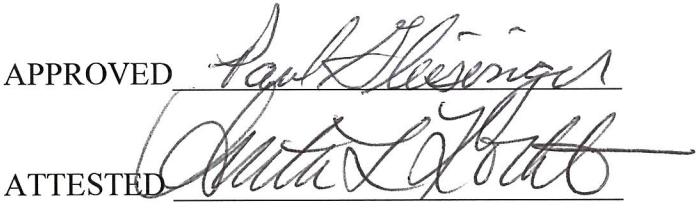 APPROVED Paul Gleisinger
ATTESTED Anita L